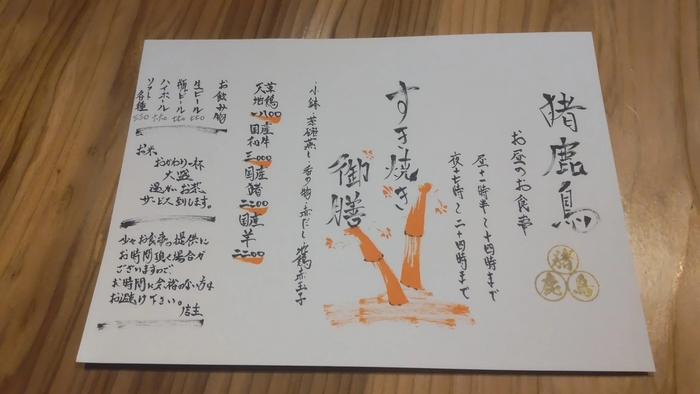 猪鹿鳥
お昼のお食事
昼十一時半〜十四時まで
夜十七時〜二十四時まで
猪
鹿
鳥
すき焼き
御膳
小鉢・茶碗蒸し・香の物・赤だし・地鶏赤玉子
天草
地鶏
二一〇〇
国産
和牛
三〇〇〇
国産
猪
二二〇〇
国産
羊
二二〇〇
お飲み物
生ビール
瓶ビール
ハイボール
ソフト各種
お米、
おかわり一杯
大盛
温かいお茶、
サービス致します。
少々お食事の提供に
お時間頂く場合が
ございますので
お時間に余裕のない方は
お避け下さい。
店主